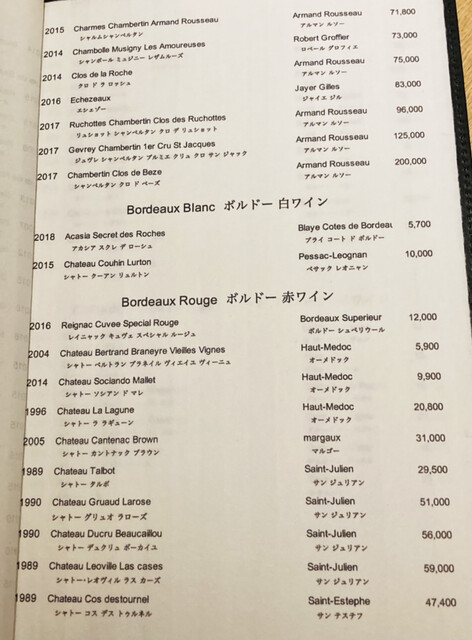 2015 Charmes Chambertin Armand Rousseau Armand Rousseau 71,800
シャルムシャンベルタン アルマン ルソー
2014 Chambolle Musigny Les Amoureuses Robert Groffier 73,000
シャンボール ミュジニー レザムルーズ ロベール グロフィエ
2014 Clos de la Roche Armand Rousseau 75,000
クロ ド ラ ロッシュ アルマン ルソー
2016 Echezeaux Jayer Gilles 83,000
エシェゾー ジャイエ ジル
2017 Ruchottes Chambertin Clos des Ruchottes Armand Rousseau 96,000
リュショット シャンベルタン クロ デ リュショット アルマン ルソー
2017 Gevrey Chambertin 1er Cru St Jacques Armand Rousseau 125,000
ジュヴレ シャンベルタン プルミエ クリュ クロ サン ジャック アルマン ルソー
2017 Chambertin Clos de Beze Armand Rousseau 200,000
シャンベルタン クロ ド ベーズ アルマン ルソー
Bordeaux Blanc ボルドー 白ワイン
2018 Acasia Secret des Roches Blaye Cotes de Bordeau 5,700
アカシア スクレ デ ローシュ ブライ コート ド ボルドー
2015 Chateau Couhin Lurton Pessac-Leognan 10,000
シャトー クーアン リュルトン ペサック レオニャン
Bordeaux Rouge ボルドー 赤ワイン
2016 Reignac Cuvee Special Rouge Bordeaux Superieur 12,000
レイニャック キュヴェ スペシャル ルージュ ボルドー シュペリウール
2004 Chateau Bertrand Braneyre Vieilles Vignes Haut-Medoc 5,900
シャトー ベルトラン ブラネイル ヴィエイユ ヴィーニュ オーメドック
2014 Chateau Sociando Mallet Haut-Medoc 9,900
シャトー ソシアン ド マレ オーメドック
1996 Chateau La Lagune Haut-Medoc 20,800
シャトー ラ ラギューン オーメドック
2005 Chateau Cantenac Brown margaux 31,000
シャトー カントナック ブラウン マルゴー
1989 Chateau Talbot Saint-Julien 29,500
シャトー タルボ サン ジュリアン
1990 Chateau Gruaud Larose Saint-Julien 51,000
シャトー グリュオ ラローズ サン ジュリアン
1990 Chateau Ducru Beaucaillou Saint-Julien 56,000
シャトー デュクリュ ボーカイユ サン ジュリアン
1989 Chateau Leoville Las cases Saint-Julien 59,000
シャトー・レオヴィル ラス カーズ サン ジュリアン
1989 Chateau Cos destournel Saint-Estephe 47,400
シャトー コス デス トゥルネル サン テステフ